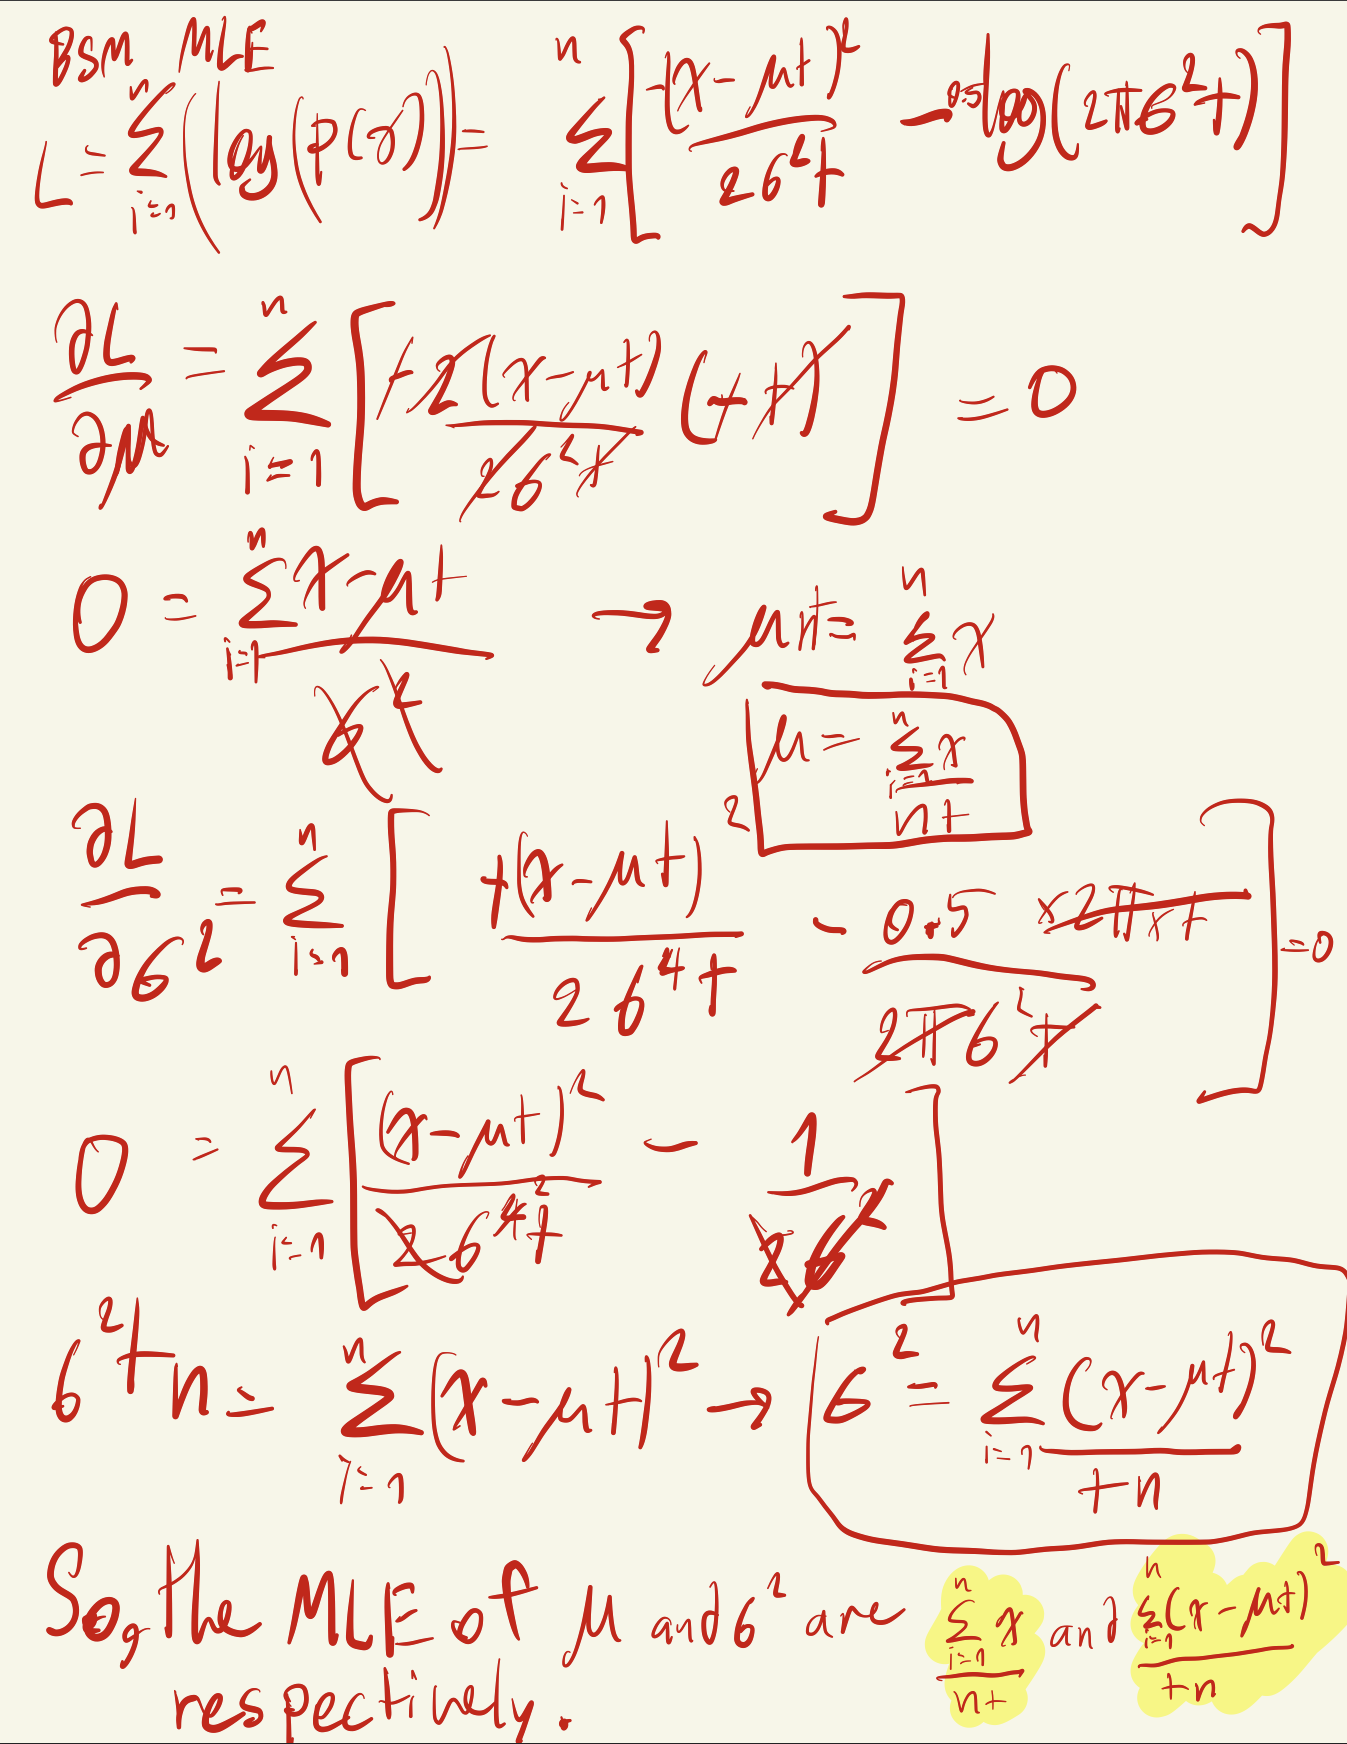 BSM MLE
L = \sum_{i=1}^{n} (log(p(x))) = \sum_{i=1}^{n} [ \frac{-(x-μt)^2}{2σ^2t} - 0.5 log(2πσ^2t) ]
\frac{∂L}{∂μ} = \sum_{i=1}^{n} [ \frac{-2(x-μt)}{2σ^2t} (-t) ] = 0
0 = \frac{\sum_{i=1}^{n} x-μt}{σ^2} → μnt = \sum_{i=1}^{n} x
μ = \frac{\sum_{i=1}^{n} x}{nt}
\frac{∂L}{∂σ^2} = \sum_{i=1}^{n} [ \frac{+(x-μt)^2}{2σ^4t} - \frac{0.5 × 2π × t}{2πσ^2t} ] = 0
0 = \sum_{i=1}^{n} [ \frac{(x-μt)^2}{2σ^{4 2}t} - \frac{1}{2σ^2} ]
σ^2tn = \sum_{i=1}^{n} (x-μt)^2 → σ^2 = \frac{\sum_{i=1}^{n} (x-μt)^2}{tn}
So, the MLE of μ and σ^2 are \frac{\sum_{i=1}^{n} x}{nt} and \frac{\sum_{i=1}^{n} (x-μt)^2}{tn}
respectively.